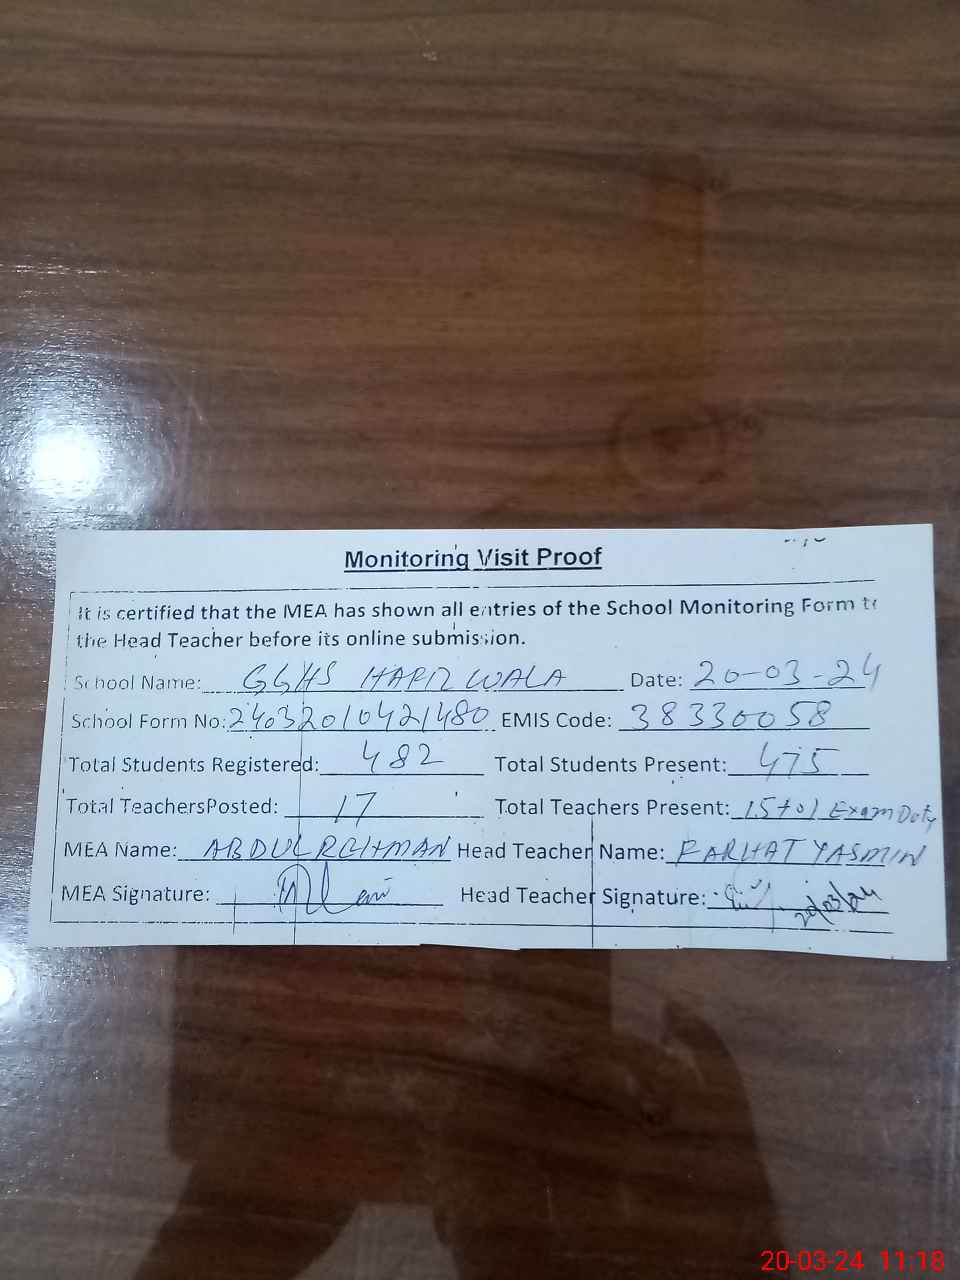 Monitoring Visit Proof
It is certified that the MEA has shown all entries of the School Monitoring Form to
the Head Teacher before its online submission.
School Name: GGHS HAFIZ WALA Date: 20-03-24
School Form No: 24032010421480 EMIS Code: 38330058
Total Students Registered: 482 Total Students Present: 475
Total TeachersPosted: 17 Total Teachers Present: 15+01 Exam Duty
MEA Name: ABDUL REHMAN Head Teacher Name: FARHAT YASMIN
MEA Signature: Head Teacher Signature: 20/03/24
20-03-24 11:18